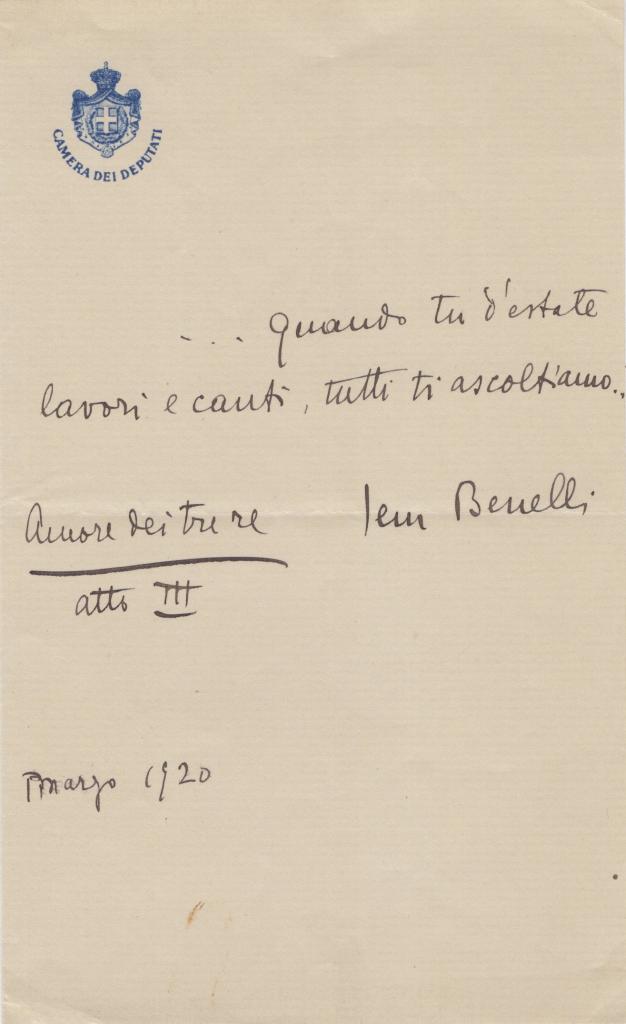 CAMERA DEI DEPUTATI
... quando tu d'estate
lavori e canti, tutti ti ascoltiamo..
Amore dei tre re
Sem Benelli
atto III
Marzo 1920